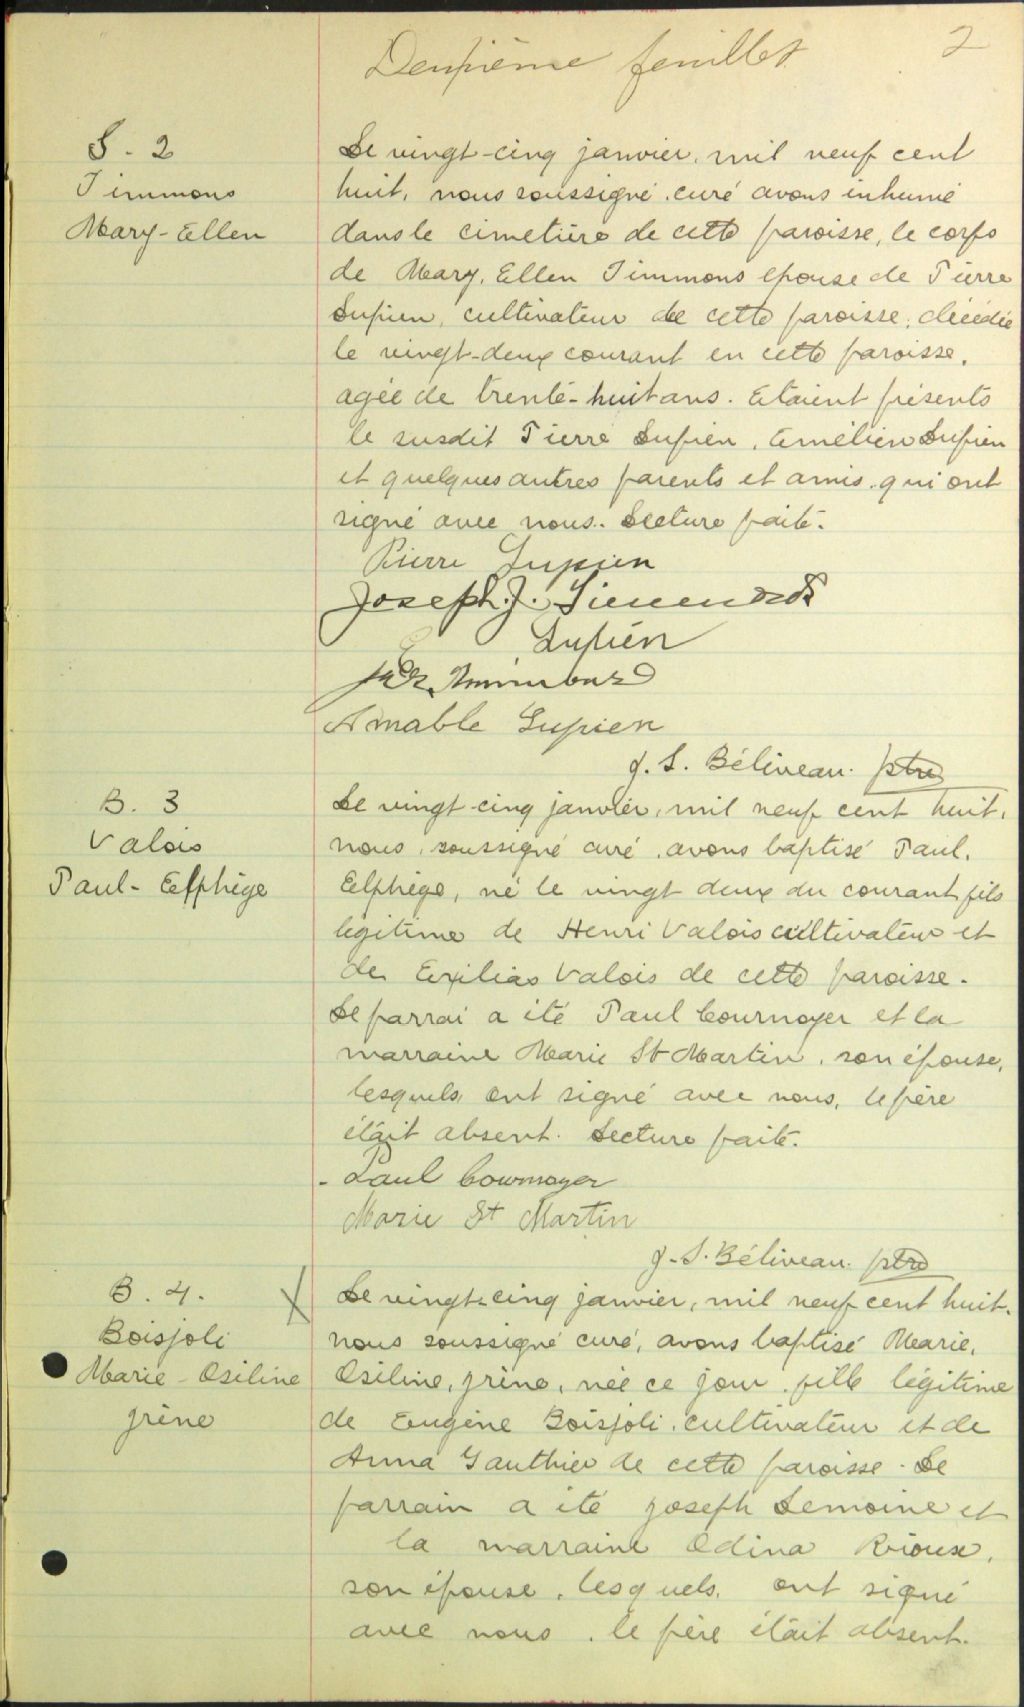 Deuxième feuillet 2
S. 2
Timmons
Mary-Ellen
Le vingt-cinq janvier, mil neuf cent
huit, nous soussigné curé avons inhumé
dans le cimetière de cette paroisse, le corps
de Mary, Ellen Timmons epouse de Pierre
Lupien, cultivateur de cette paroisse, décédée
le vingt-deux courant en cette paroisse,
agée de trente-huit ans. Etaient présents
le susdit Pierre Lupien, Emélien Lupien
et quelques autres parents et amis qui ont
signé avec nous. Lecture faite.
Pierre Lupien
Joseph. J.
Lupien
Amable Lupien
J. S. Béliveau. ptre
B. 3
Valois
Paul-Elphège
Le vingt-cinq janvier, mil neuf cent huit,
nous, soussigné curé, avons baptisé Paul,
Elphège, né le vingt deux du courant fils
légitime de Henri Valois cultivateur et
de Exilias Valois de cette paroisse.
Le parrai a été Paul Cournoyer et la
marraine Marie St Martin, son épouse,
lesquels, ont signé avec nous, le père
était absent. Lecture faite.
Paul Cournoyer
Marie St Martin
J. S. Béliveau. ptre
B. 4. X
Boisjoli
Marie-Osiline
jrène
Le vingt-cinq janvier, mil neuf cent huit,
nous soussigné curé, avons baptisé Marie,
Osiline, jrène, née ce jour, fille légitime
de Eugène Boisjoli, cultivateur et de
Anna Gauthier de cette paroisse. Le
parrain a été joseph Lemoine et
la marraine Odina Rioux,
son épouse, lesquels, ont signé
avec nous, le père était absent.